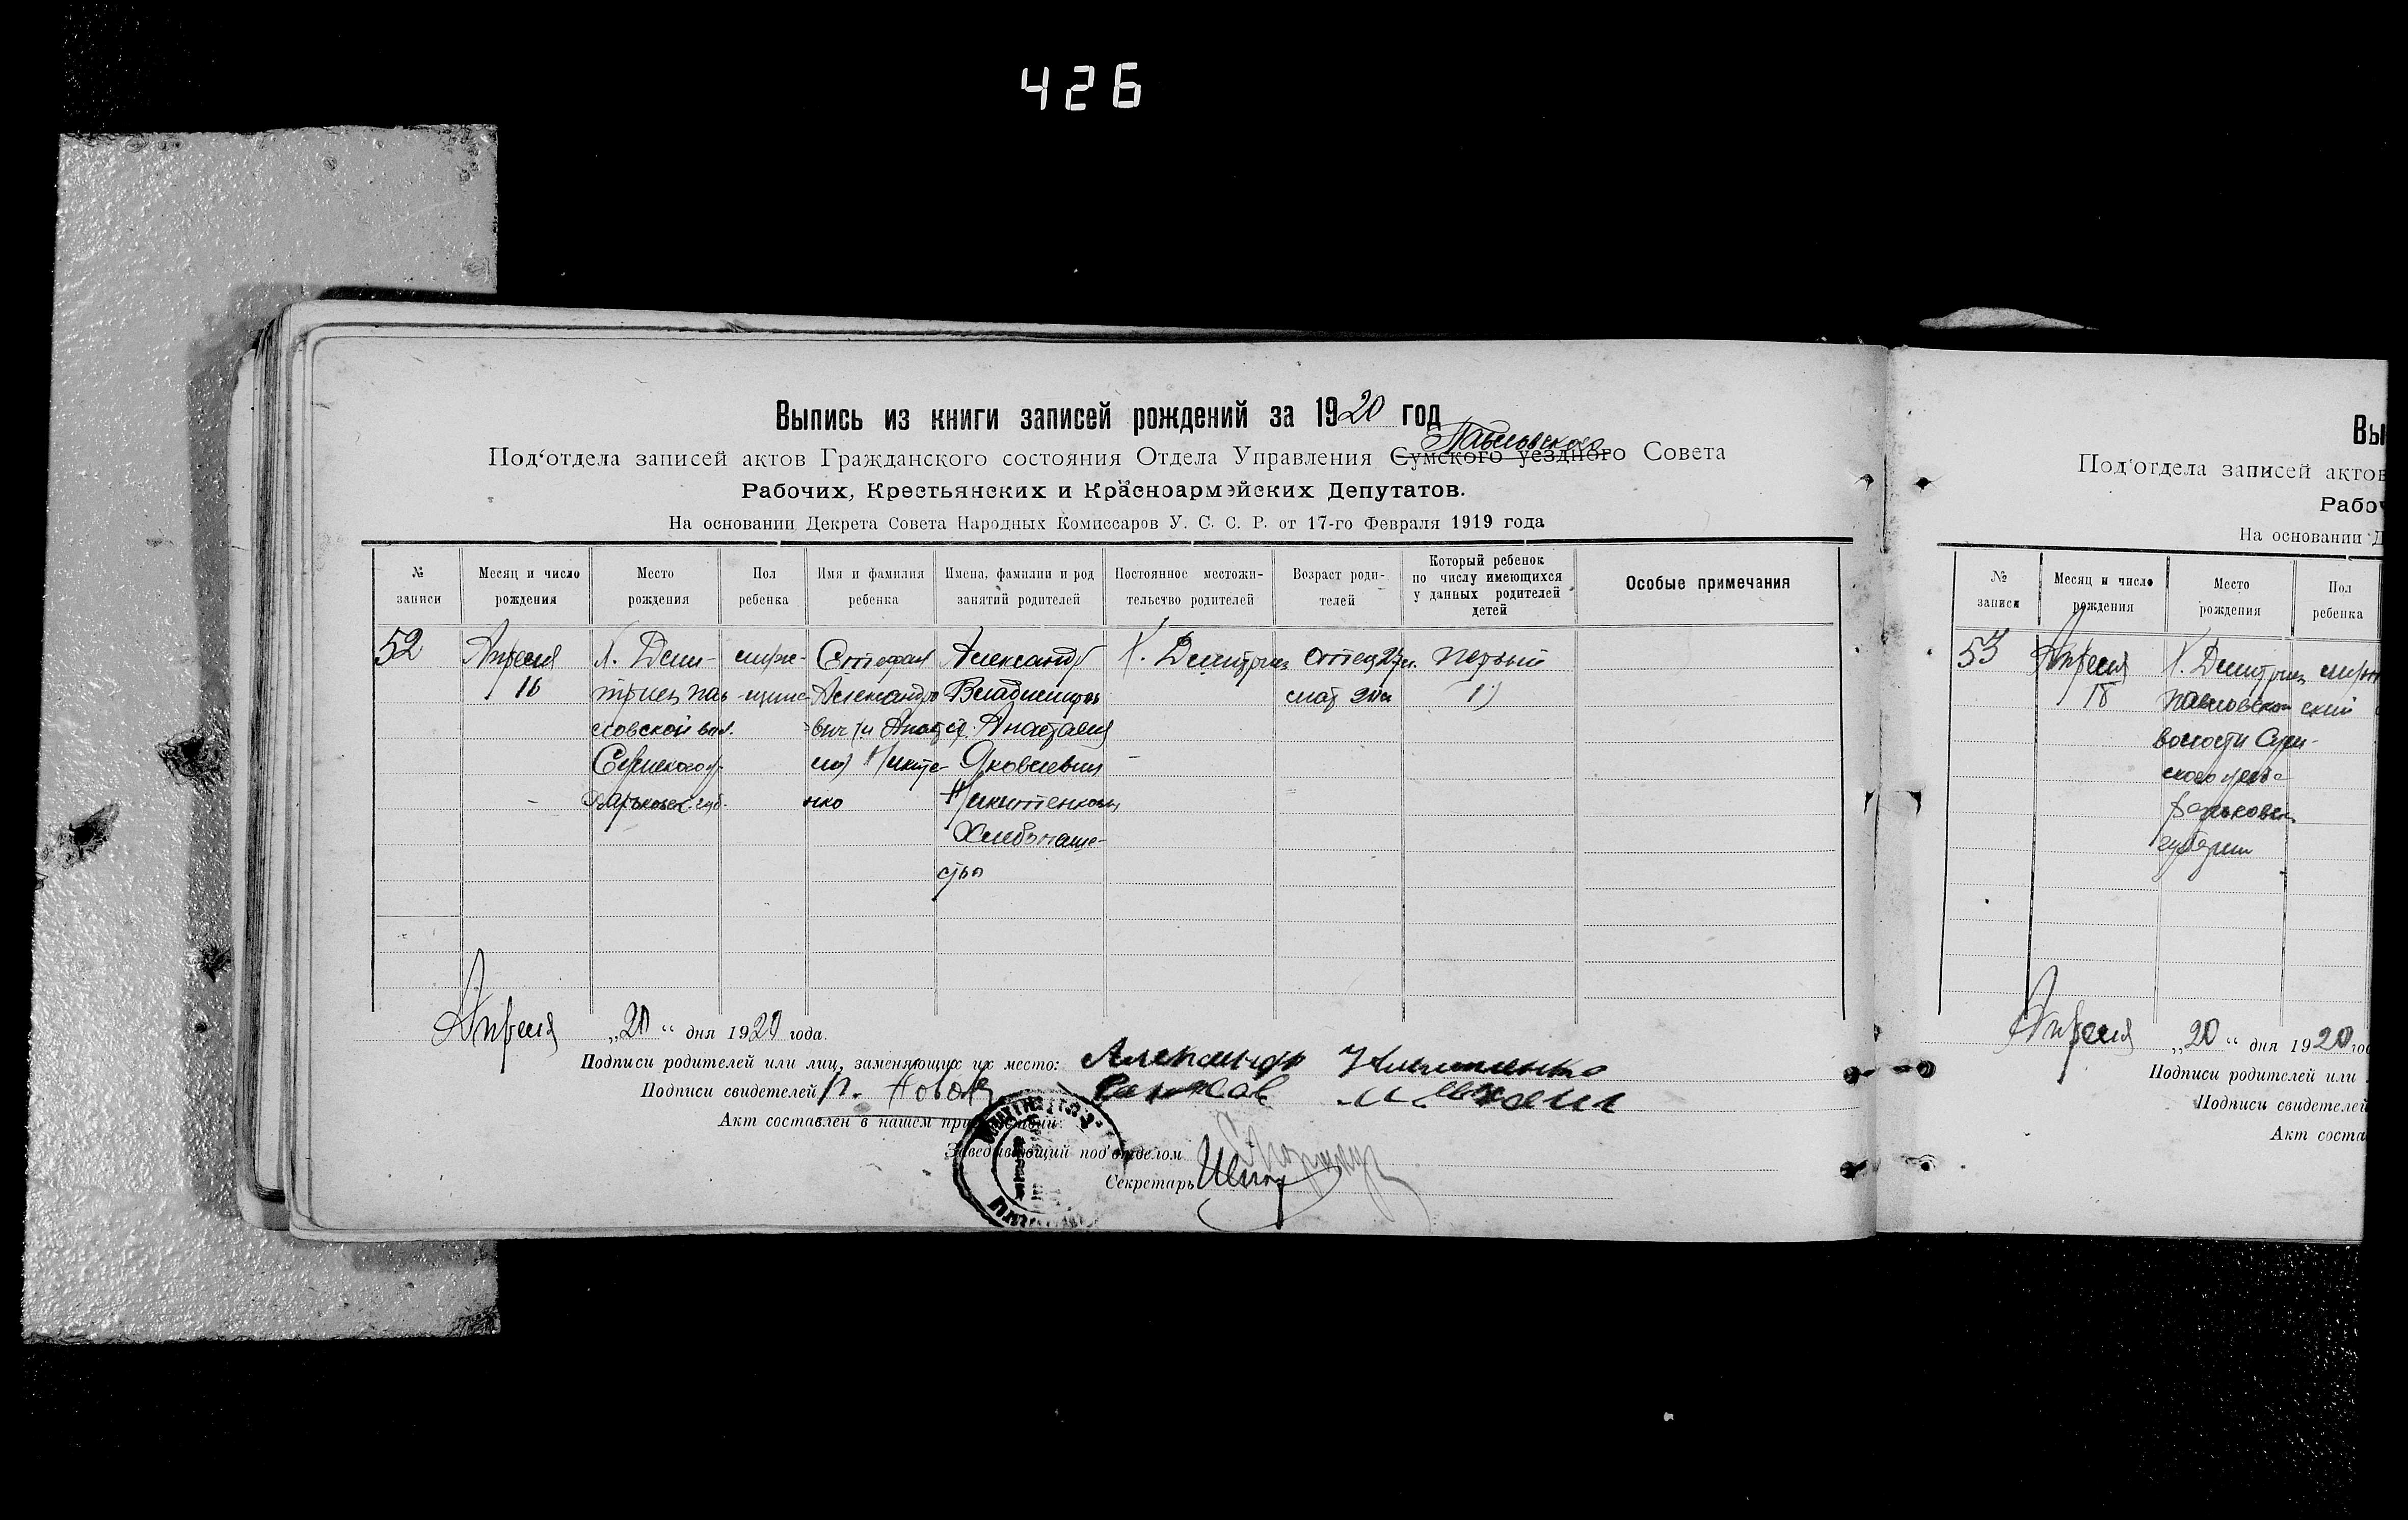 426
Выпись из книги записей рождений за 1920 год
Павловского
Под'отдела записей актов Гражданского состояния Отдела Управления Сумского уездного Совета
Рабочих, Крестьянских и Красноармэйских Депутатов.
На основании Декрета Совета Народных Комиссаров У. С. С. Р. от 17-го Февраля 1919 года
№ записи
Месяц и число рождения
Место рождения
Пол ребенка
Имя и фамилия ребенка
Имена, фамилии и род занятий родителей
Постоянное местожи-тельство родителей
Возраст роди-телей
Который ребенок по числу имеющихся у данных родителей детей
Особые примечания
52
Апреля
16
Х. Дми-
триев Пав
ловской вол.
Сумского у.
Харьковск губ.
Стефан
Александро
вич
Никите-
нко
Александр
Владимиров
Анастасия
Яковлевна
Никитенковы
Хлебопаше-
ство
Х. Дмитриев
отец 27 л.
мат
первый
1)
Апреля „20“ дня 1920 года.
Подписи родителей или лиц, заменяющих их место: Александр Никитенко
Подписи свидетелей
Акт составлен в нашем присутствии:
Заведывающий под'отделом
Секретарь
Вы
Под'отдела записей актов
Рабоч
На основании Д
№ записи
Месяц и число рождения
Место рождения
Пол ребенка
53
Апреля
18
Х. Дмитриев
Павловской
волости Сум-
ского уезда
Харьковск
губернии
Апреля „20“ дня 1920 год
Подписи родителей или
Подписи свидетелей
Акт соста